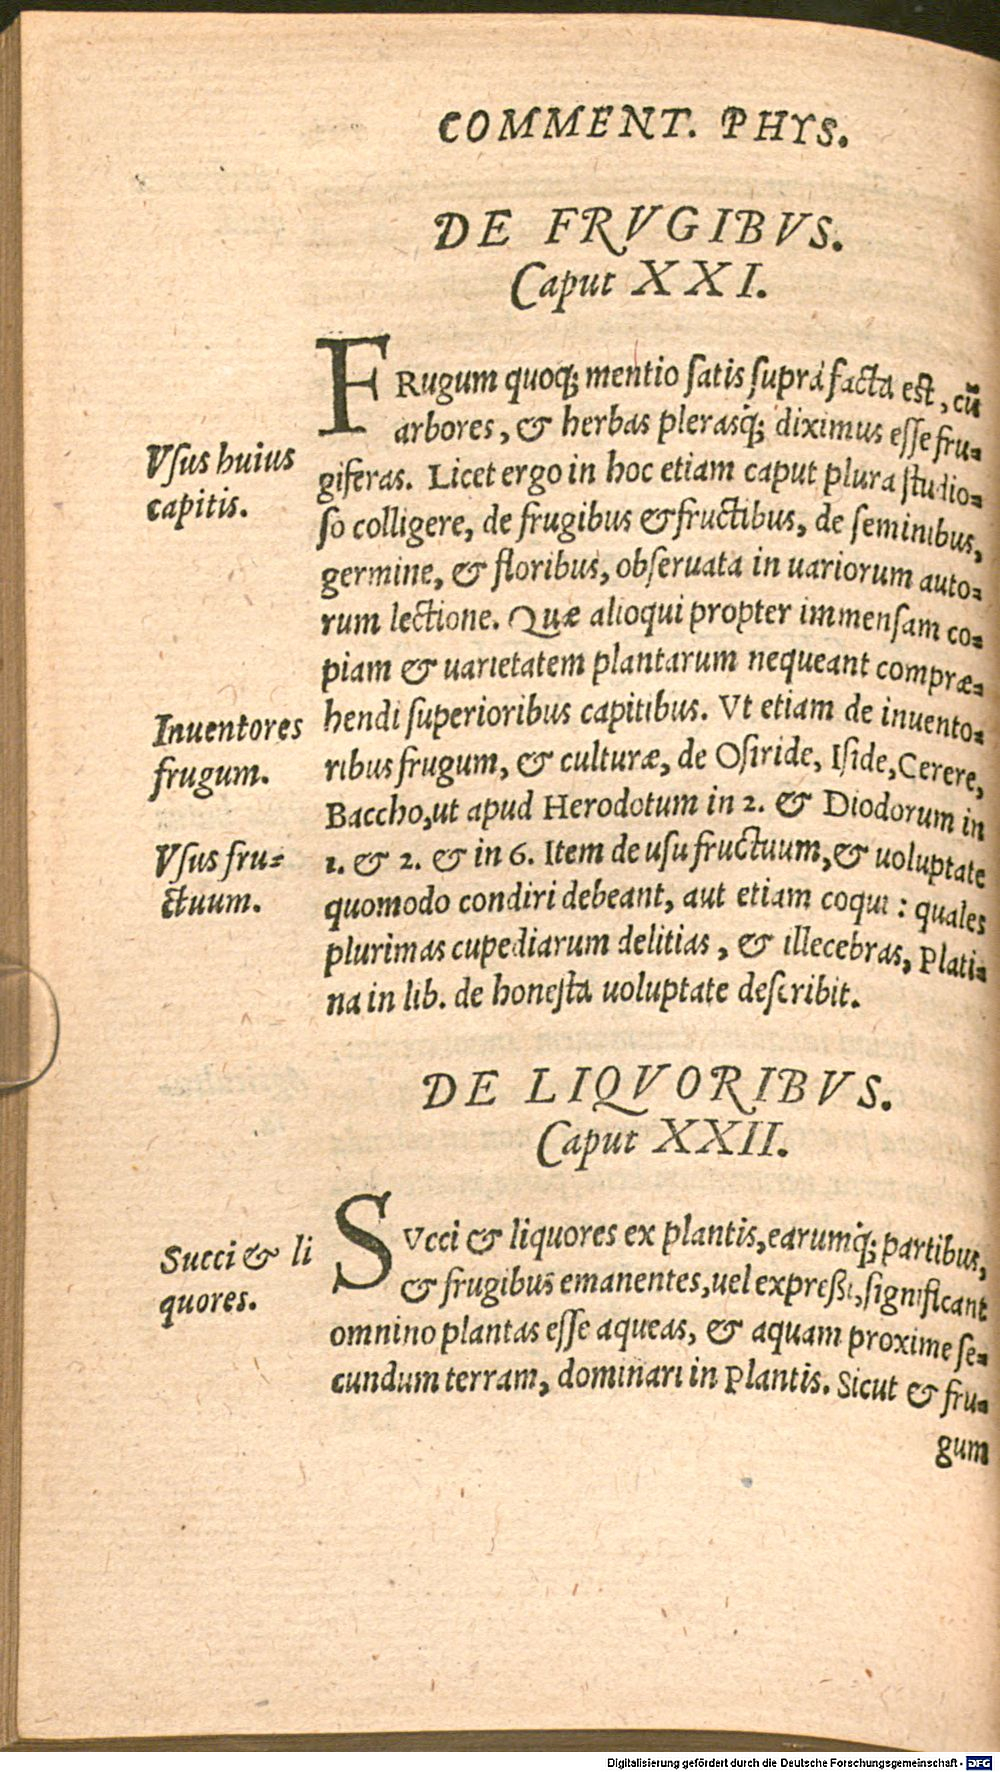 COMMENT. PHYS.
DE FRVGIBVS.
Caput XXI.
FRugum quoq; mentio satis suprà facta est, cũ
arbores, & herbas plerasq́; diximus esse fru-
Vsus huius
capitis.
giferas. Licet ergo in hoc etiam caput plura studio-
so colligere, de frugibus & fructibus, de seminibus,
germine, & floribus, obseruata in uariorum auto-
rum lectione. Quæ alioqui propter immensam co-
piam & uarietatem plantarum nequeant compræ-
Inuentores
frugum.
hendi superioribus capitibus. Vt etiam de inuento-
ribus frugum, & culturæ, de Osiride, Iside, Cerere,
Baccho, ut apud Herodotum in 2. & Diodorum in
Vsus fru-
ctuum.
1. & 2. & in 6. Item de usu fructuum, & uoluptate
quomodo condiri debeant, aut etiam coqui : quales
plurimas cupediarum delitias, & illecebras, Plati-
na in lib. de honesta uoluptate describit.
DE LIQVORIBVS.
Caput XXII.
Succi & li
quores.
SVcci & liquores ex plantis, earumq́; partibus,
& frugibus emanentes, uel expreßi, significant
omnino plantas esse aqueas, & aquam proxime se-
cundum terram, dominari in Plantis. Sicut & fru-
gum
Digitalisierung gefördert durch die Deutsche Forschungsgemeinschaft - DFG